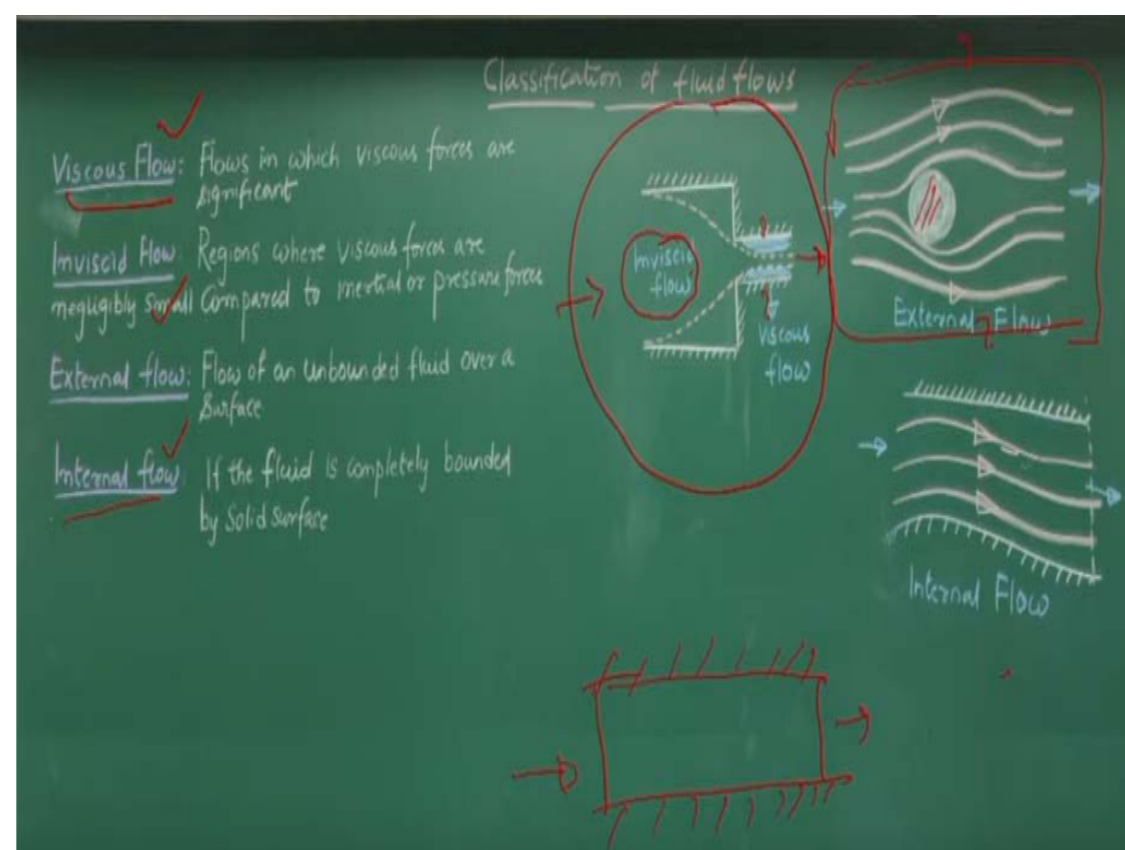 Classification of fluid flows
Viscous Flow: Flows in which viscous forces are
significant
Inviscid Flow Regions where viscous forces are
negligibly small compared to inertial or pressure forces
External flow: Flow of an unbounded fluid over a
Surface
Internal flow: If the fluid is completely bounded
by Solid surface
Inviscid
flow
Viscous
flow
External Flow
Internal Flow